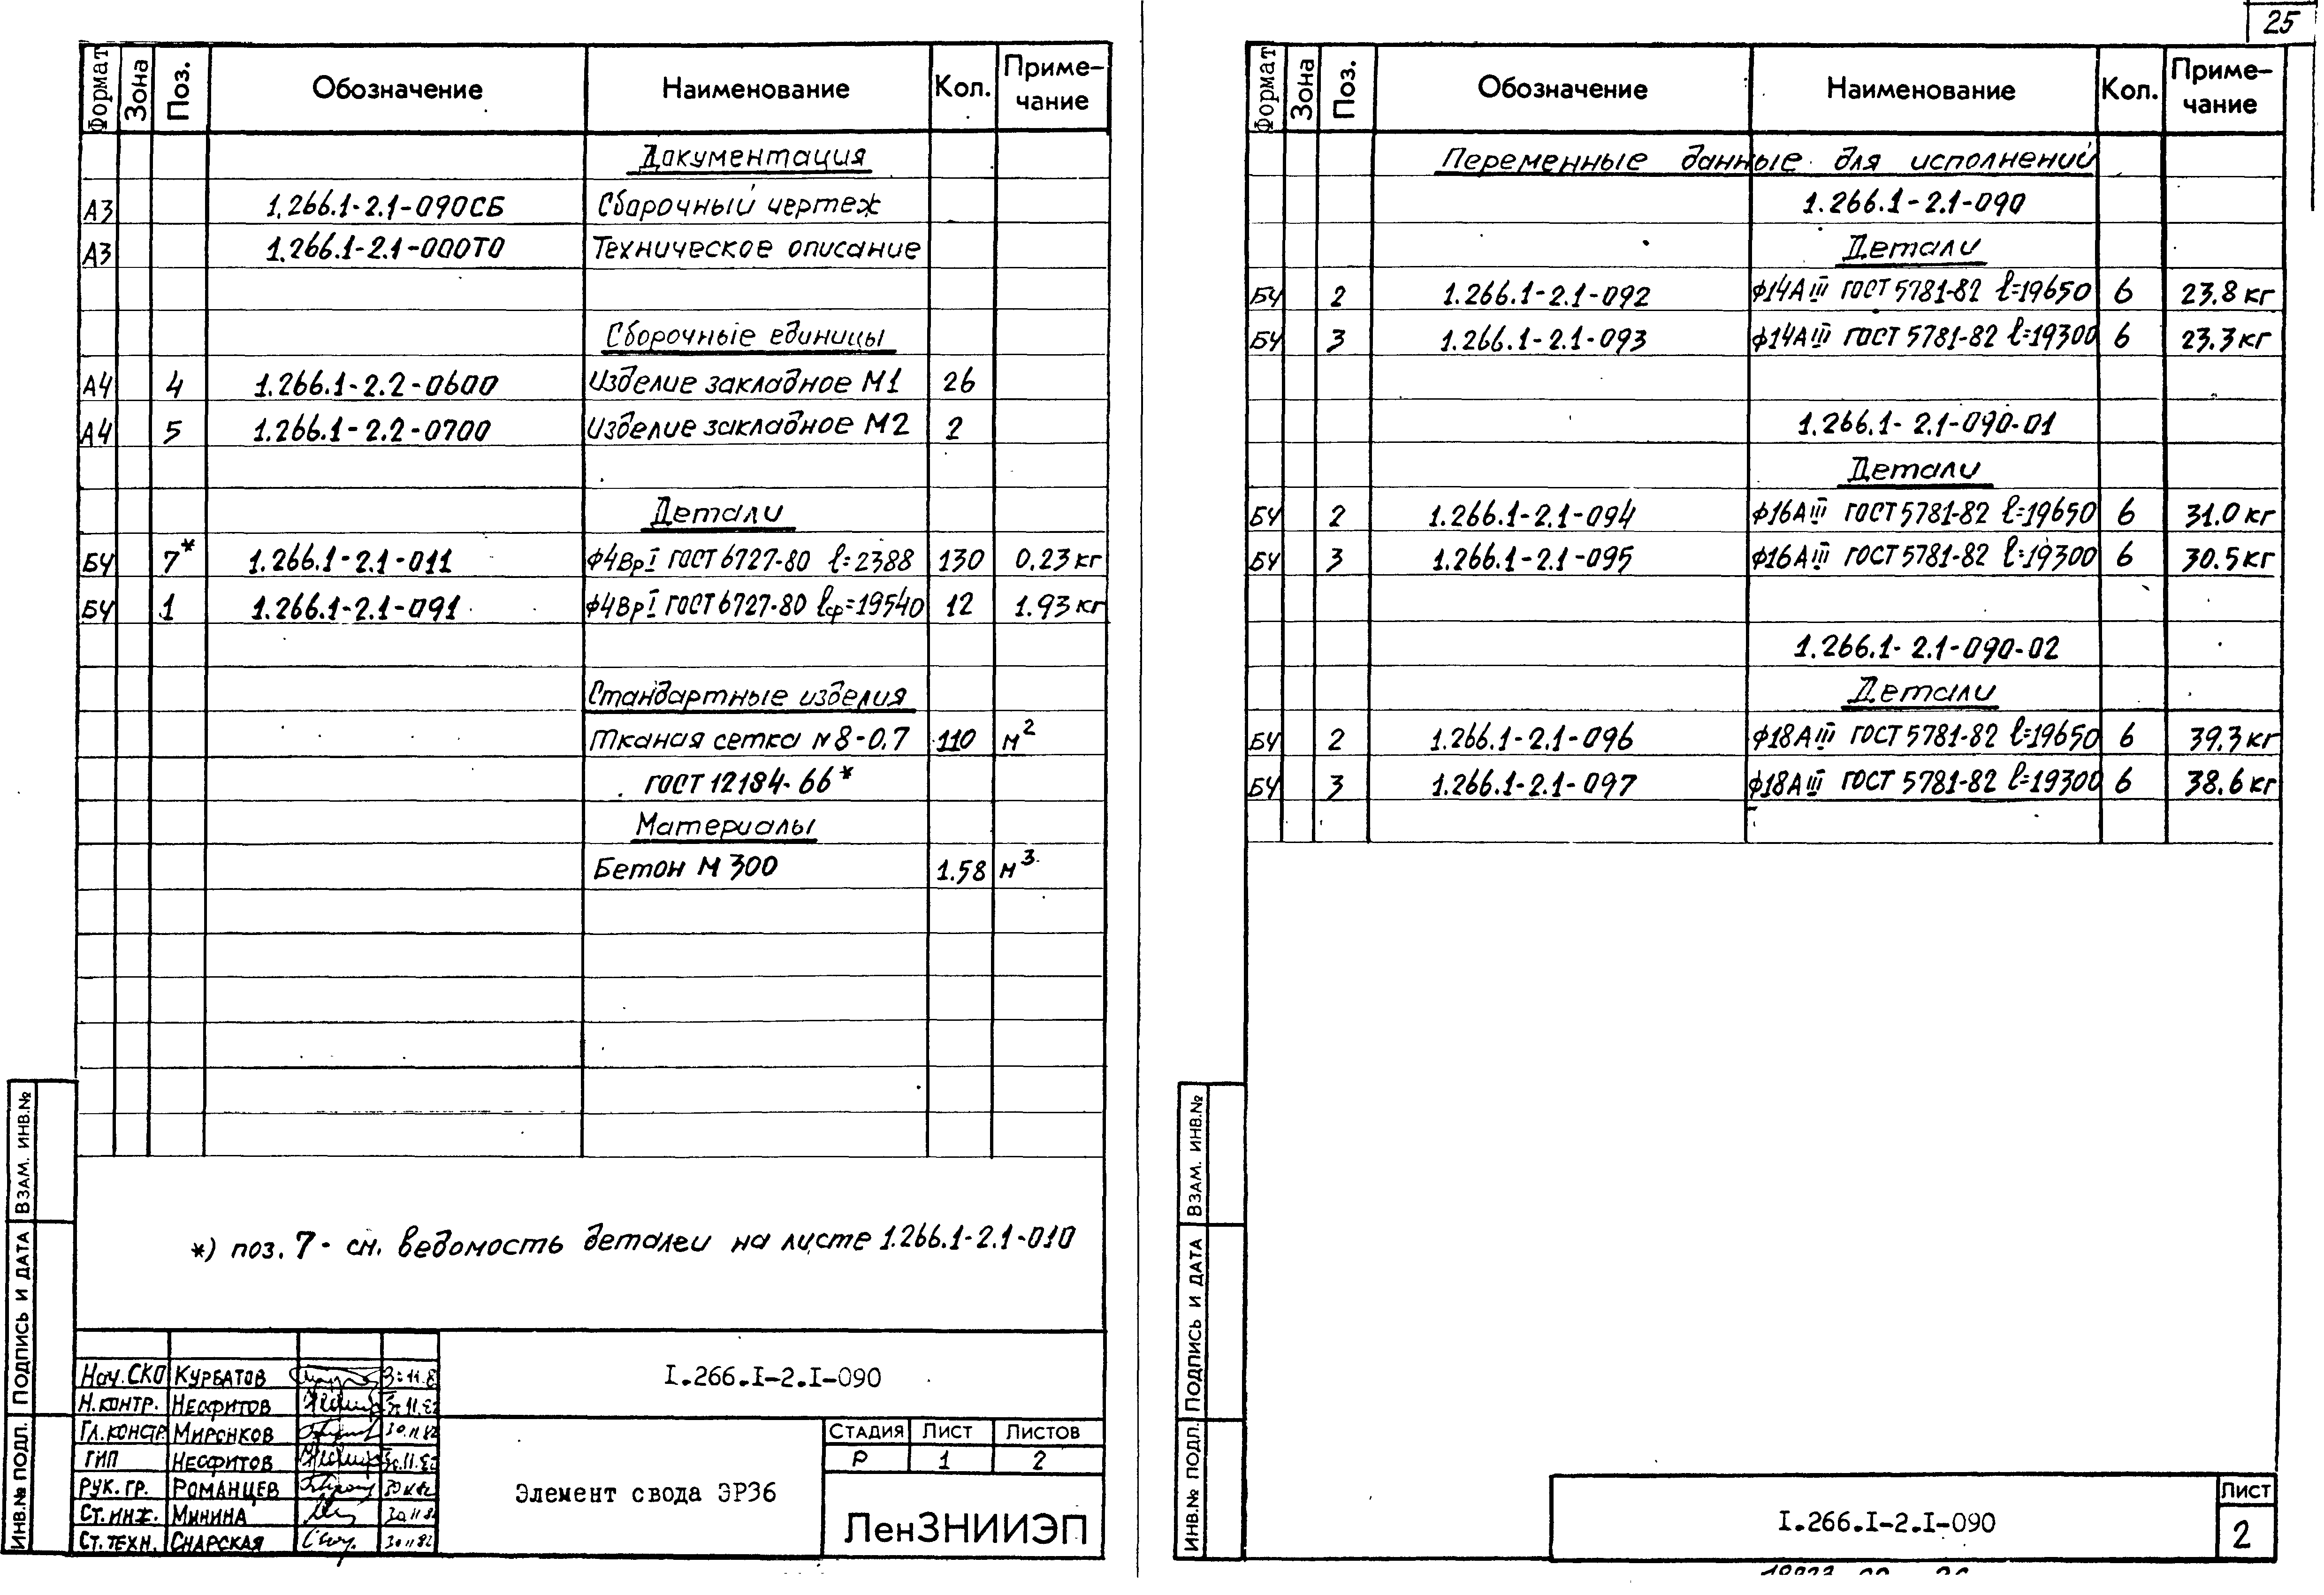 25
Формат Зона Поз. Обозначение Наименование Кол. Приме-чание
Документация
А3 1.266.1-2.1-090СБ Сборочный чертеж
А3 1.266.1-2.1-000ТО Техническое описание
Сборочные единицы
А4 4 1.266.1-2.2-0600 Изделие закладное М1 26
А4 5 1.266.1-2.2-0700 Изделие закладное М2 2
Детали
БЧ 7* 1.266.1-2.1-011 ф4ВрI ГОСТ 6727-80 ℓ=2388 130 0.23 кг
БЧ 1 1.266.1-2.1-091 ф4ВрI ГОСТ 6727-80 ℓср=19540 12 1.93 кг
Стандартные изделия
Тканая сетка N8-0.7 110 м²
ГОСТ 12184-66*
Материалы
Бетон М 300 1.58 м³
*) поз. 7 - см. ведомость деталей на листе 1.266.1-2.1-010
ИНВ.№ ПОДЛ. ПОДПИСЬ И ДАТА ВЗАМ. ИНВ.№
Нач. СКО КУРБАТОВ
Н.КОНТР. НЕОФИТОВ
ГЛ.КОНСТР. МИРОНКОВ 30.11.82
ГИП НЕОФИТОВ
РУК. ГР. РОМАНЦЕВ
СТ.ИНЖ. МИНИНА 30.11.82
СТ.ТЕХН. СНАРСКАЯ 30.11.82
I.266.I-2.I-090
Элемент свода ЭР36
СТАДИЯ ЛИСТ ЛИСТОВ
Р 1 2
ЛенЗНИИЭП
Формат Зона Поз. Обозначение Наименование Кол. Приме-чание
Переменные данные для исполнений
1.266.1-2.1-090
Детали
БЧ 2 1.266.1-2.1-092 ф14АIII ГОСТ 5781-82 ℓ=19650 6 23.8 кг
БЧ 3 1.266.1-2.1-093 ф14АIII ГОСТ 5781-82 ℓ=19300 6 23.3 кг
1.266.1-2.1-090-01
Детали
БЧ 2 1.266.1-2.1-094 ф16АIII ГОСТ 5781-82 ℓ=19650 6 31.0 кг
БЧ 3 1.266.1-2.1-095 ф16АIII ГОСТ 5781-82 ℓ=19300 6 30.5 кг
1.266.1-2.1-090-02
Детали
БЧ 2 1.266.1-2.1-096 ф18АIII ГОСТ 5781-82 ℓ=19650 6 39.3 кг
БЧ 3 1.266.1-2.1-097 ф18АIII ГОСТ 5781-82 ℓ=19300 6 38.6 кг
ИНВ.№ ПОДЛ. ПОДПИСЬ И ДАТА ВЗАМ. ИНВ.№
I.266.I-2.I-090
ЛИСТ
2